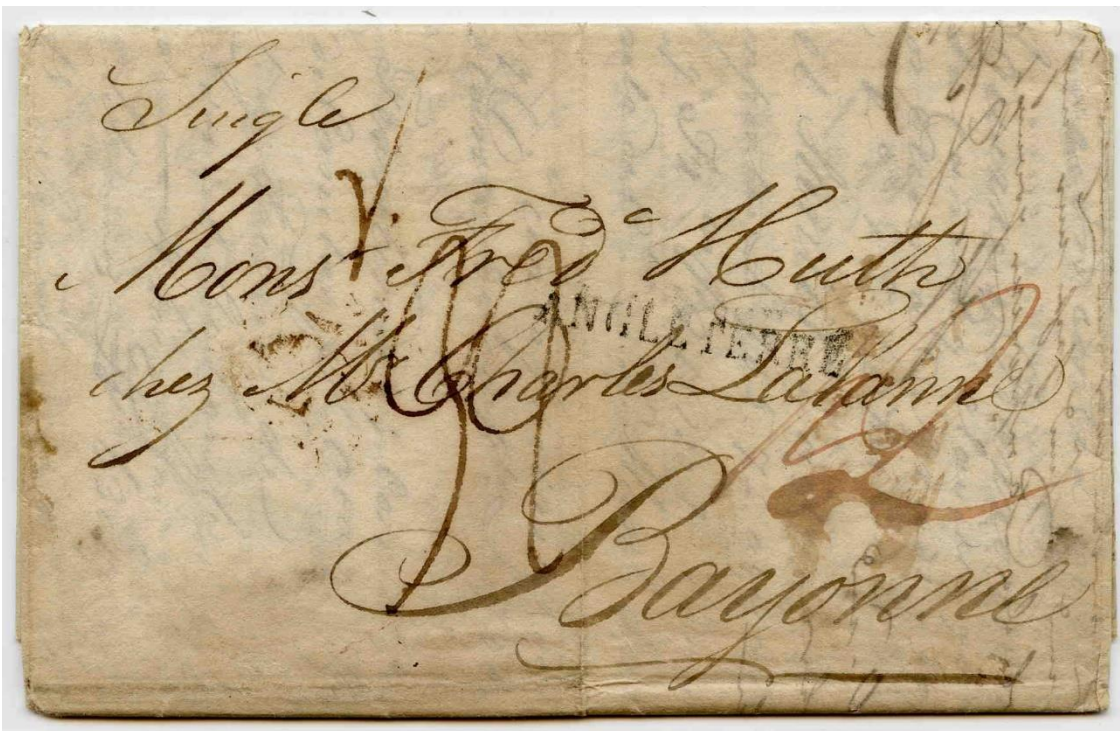 Single
Mons.r Fred.c Huth
ANGLETERRE
chez Mr Charles Lalanne
Bayonne